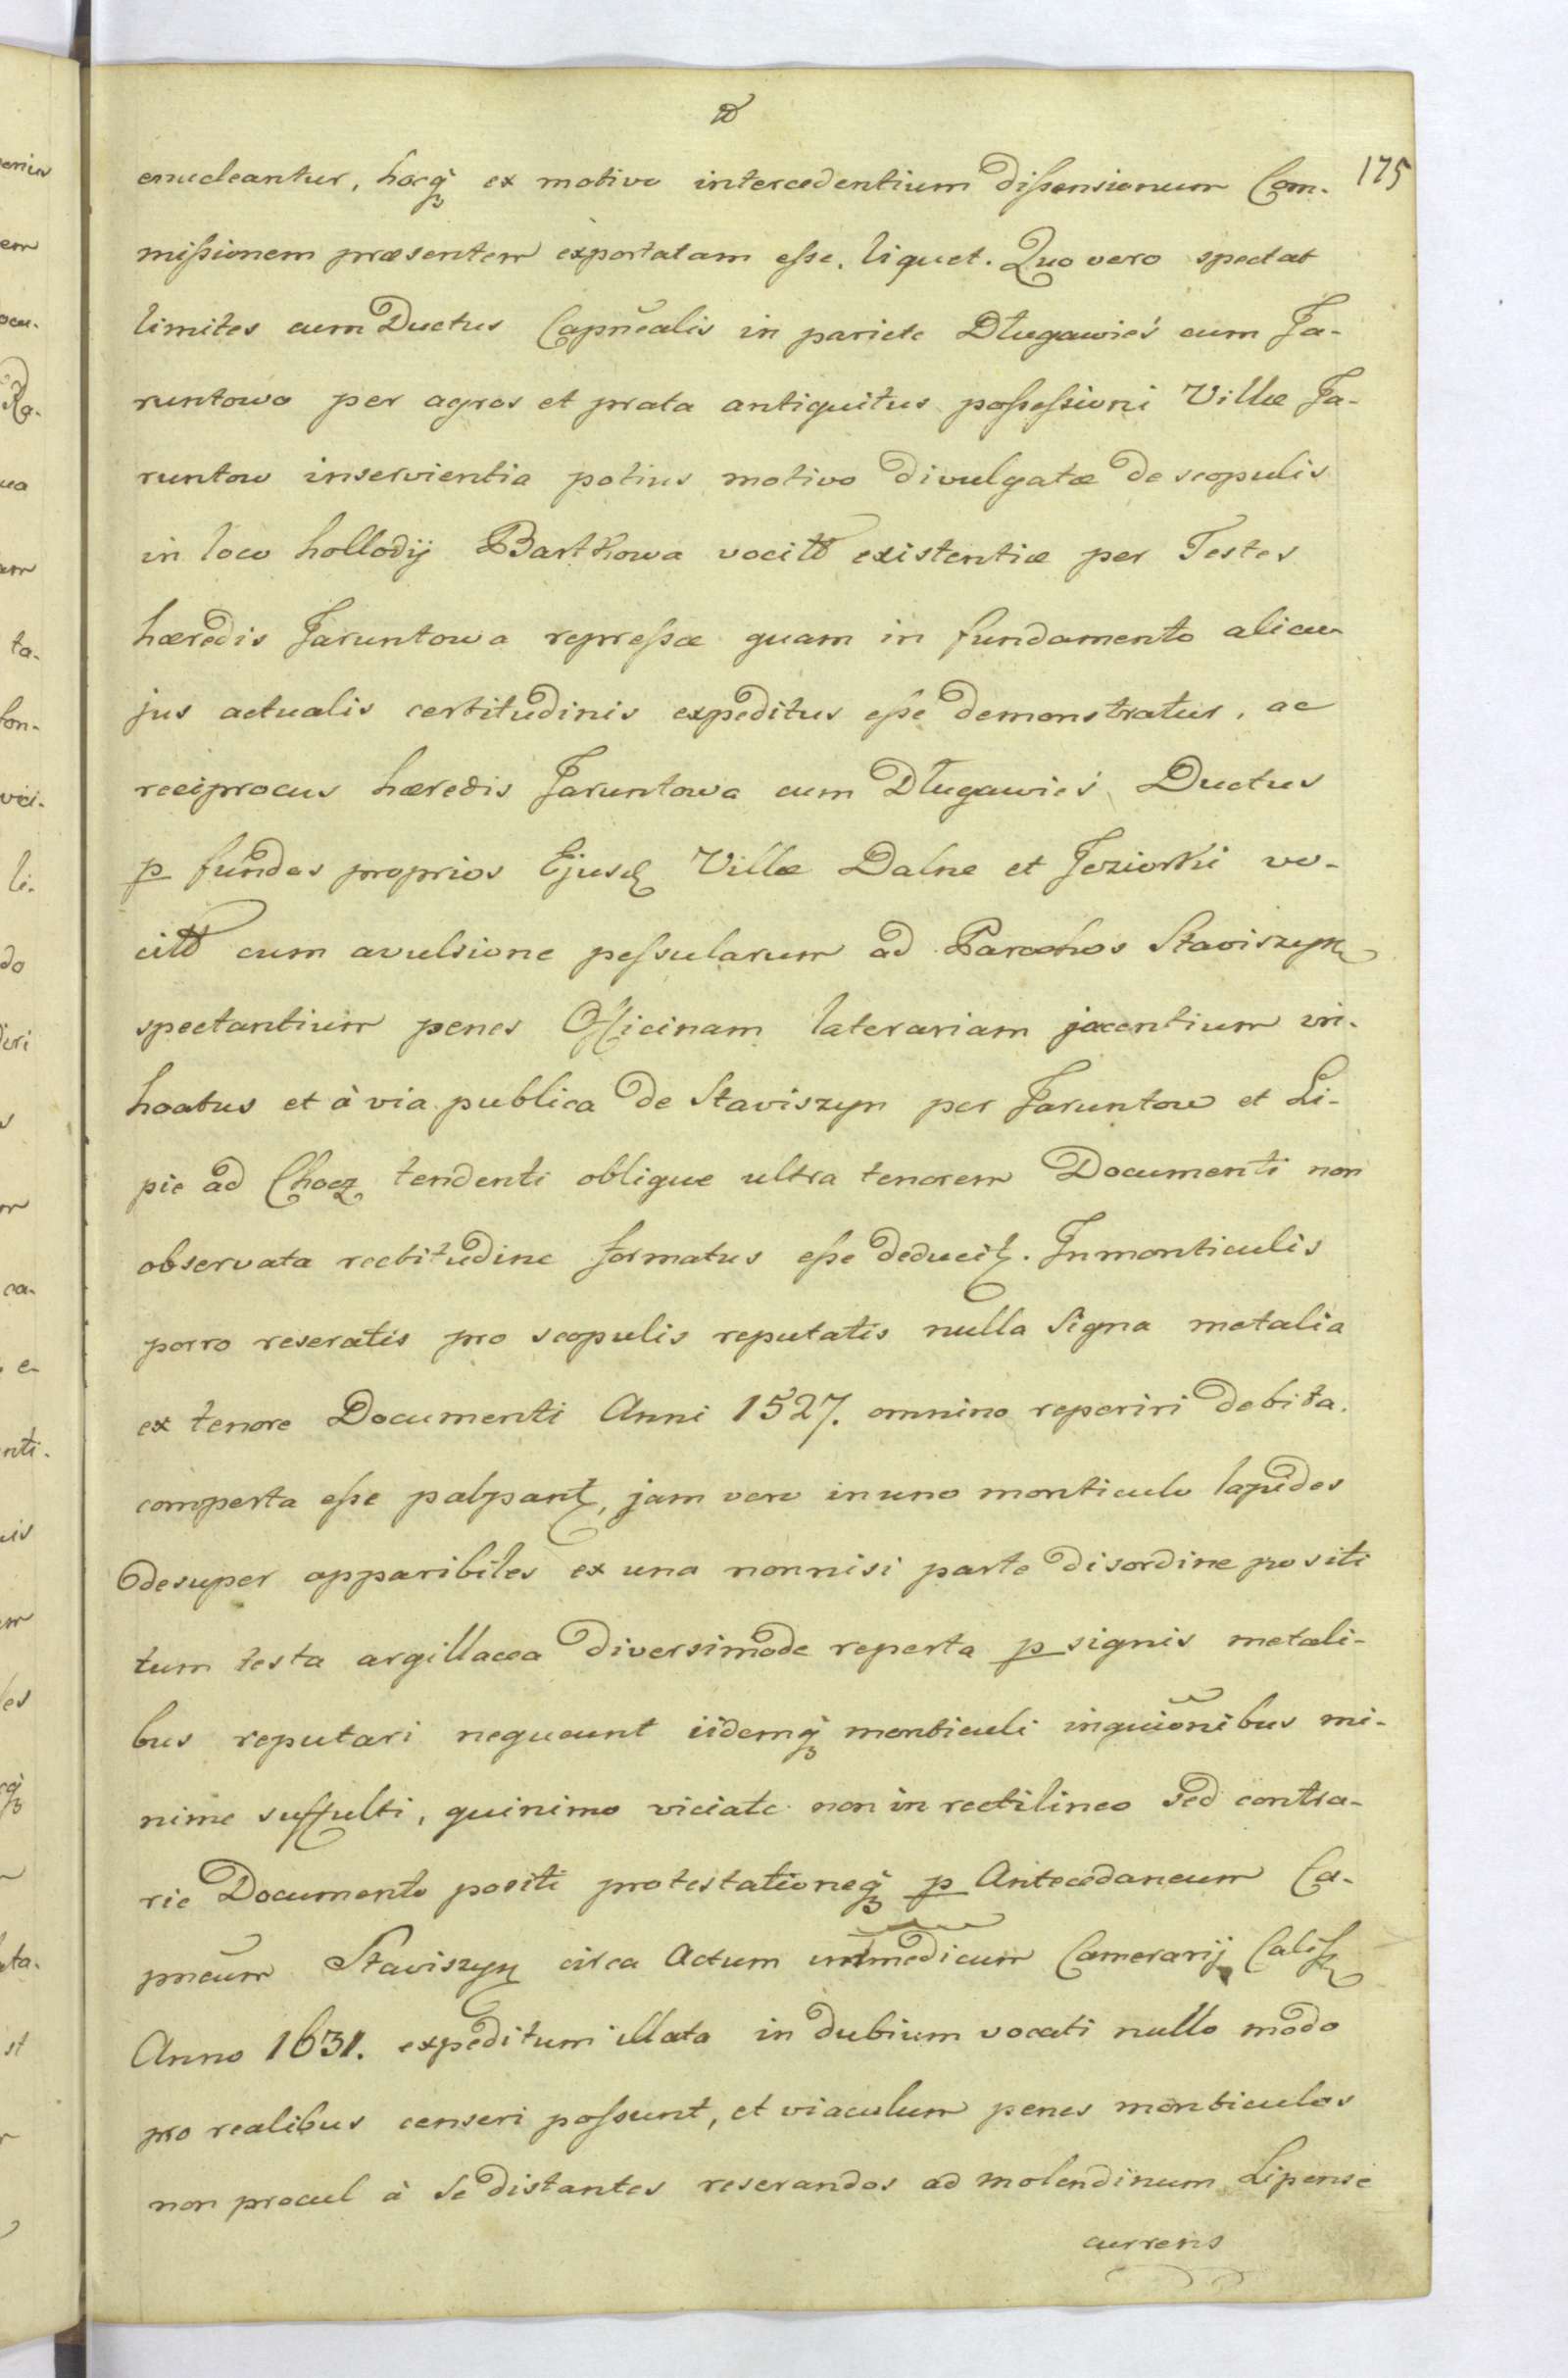 175
enucleantur, hocq́ ex motivo intercedentium dißensionum Com-
mißionem præsentem exportatam eße, liquet. Quo vero spectat
limites cum Ductus Capnealis in pariete Długawieś cum Ja-
runtowo per agros et prata antiquitus poßeßioni Villæ Ja-
runtow inservientia potius motivo divulgatæ de scopulis
in loco hollodij Bartkowa vocitt existentiæ per Testes
hæredis Jaruntowa repreßæ quam in fundamento alicu-
jus actualis certitudinis expeditus eße demonstratur, ac
reciprocus hæredis Jaruntowa cum Długawieś Ductus
p fundos proprios Ejusd Villæ Dalne et Jeziorki vo-
citt cum avulsione peßularum ad Parochos Staviszyn
spectantium penes Officinam laterariam jacentium in-
hoatus et à via publica de Staviszyn per Jaruntow et Li-
pie ad Chocz tendenti oblique ultra tenorem Documenti non
observata rectitudine formatus eße deducit. In monticulis
porro reseratis pro scopulis reputatis nulla Signa metalia
ex tenore Documenti Anni 1527. omnino reperiri debita.
comperta eße palpant, jam vero in uno monticulo lapides
desuper apparibiles ex una nonnisi parte disordine positi
tum testa argillacea diversimode reperta p signis metali-
bus reputari nequeunt iidemq́ monticuli inquionibus mi-
nime suffulti, quinimo viciate non in rectilineo sed contra-
rie Documento positi protestationeq́ p Antecedaneum Ca-
pneum Staviszyn circa Actum Camerarij Caliß
Anno 1631. expeditum illata in dubium vocati nullo modo
pro realibus censeri poßunt, et viaculum penes monticulos
non procul à se distantes reserandos ad molendinum Lipense
currens